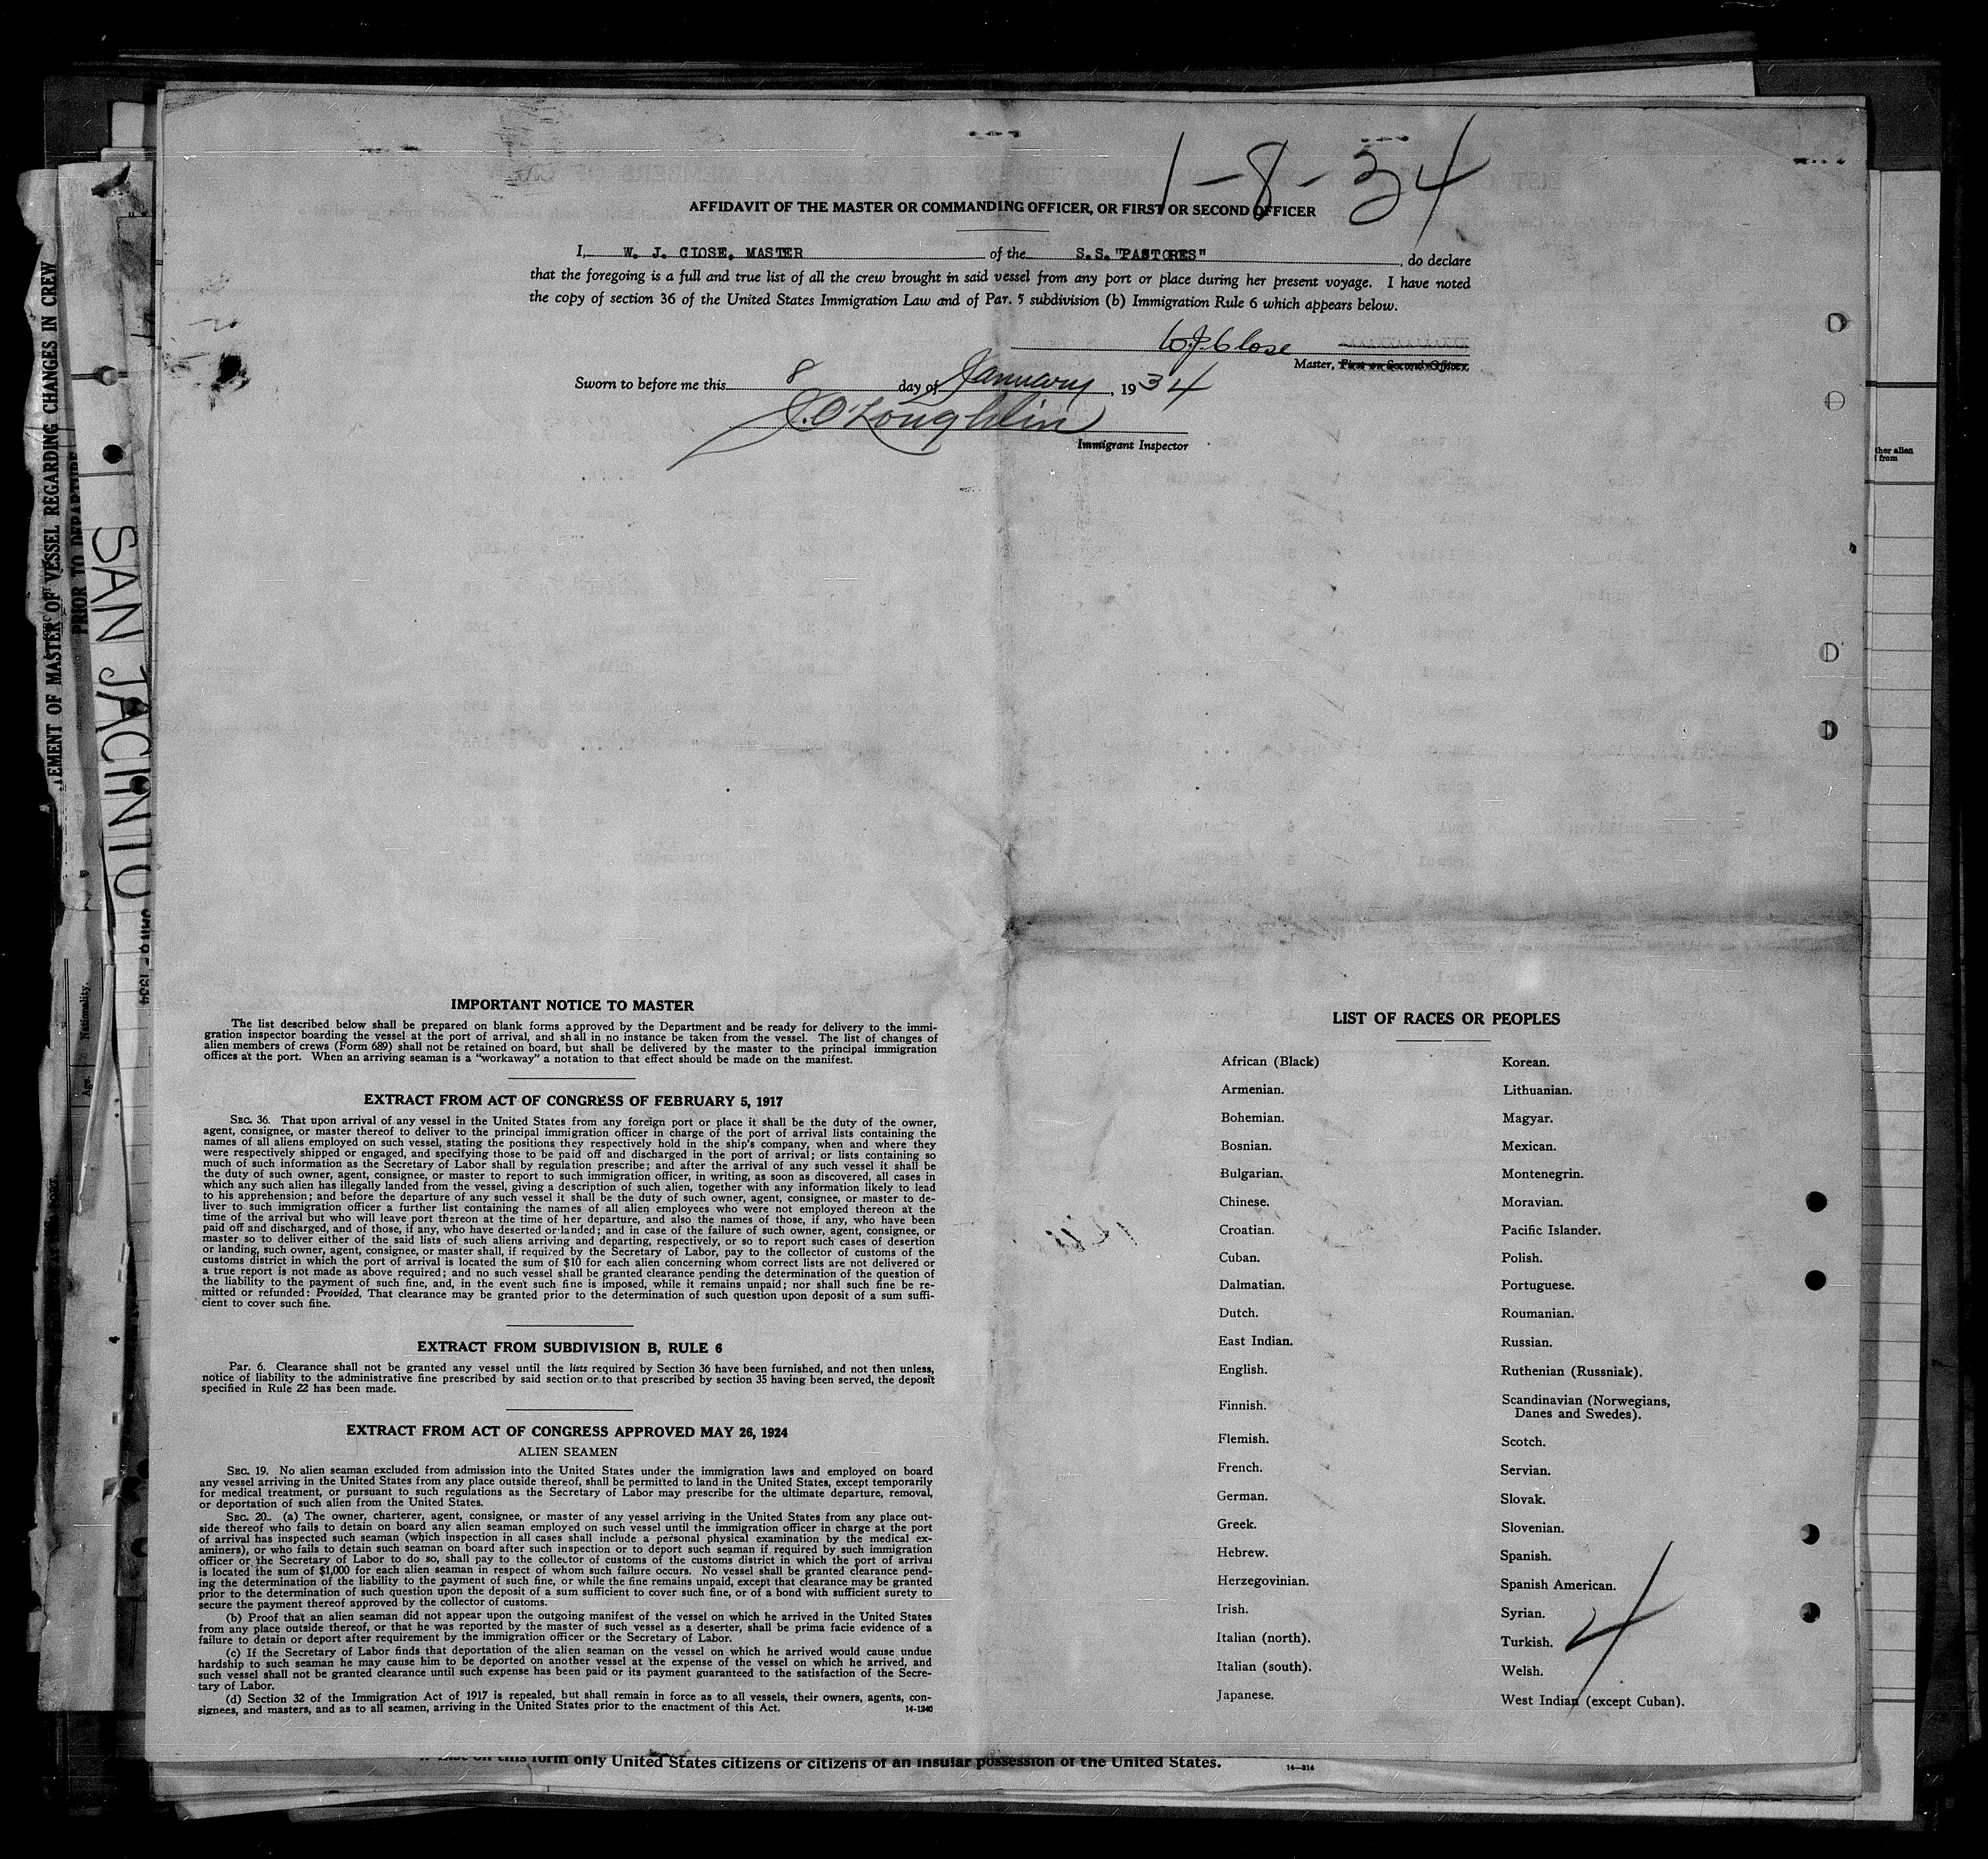 1-8-34
AFFIDAVIT OF THE MASTER OR COMMANDING OFFICER, OR FIRST OR SECOND OFFICER
I, W. J. CLOSE, MASTER of the S.S. "PASTORES", do declare
that the foregoing is a full and true list of all the crew brought in said vessel from any port or place during her present voyage. I have noted
the copy of section 36 of the United States Immigration Law and of Par. 5 subdivision (b) Immigration Rule 6 which appears below.
W.J. Close
Master, First or Second Officer.
Sworn to before me this 8 day of January, 1934
J. O'Loughlin
Immigrant Inspector
IMPORTANT NOTICE TO MASTER
The list described below shall be prepared on blank forms approved by the Department and be ready for delivery to the immi-
gration inspector boarding the vessel at the port of arrival, and shall in no instance be taken from the vessel. The list of changes of
alien members of crews (Form 689) shall not be retained on board, but shall be delivered by the master to the principal immigration
offices at the port. When an arriving seaman is a "workaway" a notation to that effect should be made on the manifest.
EXTRACT FROM ACT OF CONGRESS OF FEBRUARY 5, 1917
SEC. 36. That upon arrival of any vessel in the United States from any foreign port or place it shall be the duty of the owner,
agent, consignee, or master thereof to deliver to the principal immigration officer in charge of the port of arrival lists containing the
names of all aliens employed on such vessel, stating the positions they respectively hold in the ship's company, when and where they
were respectively shipped or engaged, and specifying those to be paid off and discharged in the port of arrival; or lists containing so
much of such information as the Secretary of Labor shall by regulation prescribe; and after the arrival of any such vessel it shall be
the duty of such owner, agent, consignee, or master to report to such immigration officer, in writing, as soon as discovered, all cases in
which any such alien has illegally landed from the vessel, giving a description of such alien, together with any information likely to lead
to his apprehension; and before the departure of any such vessel it shall be the duty of such owner, agent, consignee, or master to de-
liver to such immigration officer a further list containing the names of all alien employees who were not employed thereon at the
time of the arrival but who will leave port thereon at the time of her departure, and also the names of those, if any, who have been
paid off and discharged, and of those, if any, who have deserted or landed; and in case of the failure of such owner, agent, consignee, or
master so to deliver either of the said lists of such aliens arriving and departing, respectively, or so to report such cases of desertion
or landing, such owner, agent, consignee, or master shall, if required by the Secretary of Labor, pay to the collector of customs of the
customs district in which the port of arrival is located the sum of $10 for each alien concerning whom correct lists are not delivered or
a true report is not made as above required; and no such vessel shall be granted clearance pending the determination of the question of
the liability to the payment of such fine, and, in the event such fine is imposed, while it remains unpaid; nor shall such fine be re-
mitted or refunded: Provided, That clearance may be granted prior to the determination of such question upon deposit of a sum suffi-
cient to cover such fine.
EXTRACT FROM SUBDIVISION B, RULE 6
Par. 6. Clearance shall not be granted any vessel until the lists required by Section 36 have been furnished, and not then unless,
notice of liability to the administrative fine prescribed by said section or to that prescribed by section 35 having been served, the deposit
specified in Rule 22 has been made.
EXTRACT FROM ACT OF CONGRESS APPROVED MAY 26, 1924
ALIEN SEAMEN
SEC. 19. No alien seaman excluded from admission into the United States under the immigration laws and employed on board
any vessel arriving in the United States from any place outside thereof, shall be permitted to land in the United States, except temporarily
for medical treatment, or pursuant to such regulations as the Secretary of Labor may prescribe for the ultimate departure, removal,
or deportation of such alien from the United States.
SEC. 20. (a) The owner, charterer, agent, consignee, or master of any vessel arriving in the United States from any place out-
side thereof who fails to detain on board any alien seaman employed on such vessel until the immigration officer in charge at the port
of arrival has inspected such seaman (which inspection in all cases shall include a personal physical examination by the medical ex-
aminers), or who fails to detain such seaman on board after such inspection or to deport such seaman if required by such immigration
officer or the Secretary of Labor to do so, shall pay to the collector of customs of the customs district in which the port of arrival
is located the sum of $1,000 for each alien seaman in respect of whom such failure occurs. No vessel shall be granted clearance pend-
ing the determination of the liability to the payment of such fine, or while the fine remains unpaid, except that clearance may be granted
prior to the determination of such question upon the deposit of a sum sufficient to cover such fine, or of a bond with sufficient surety to
secure the payment thereof approved by the collector of customs.
(b) Proof that an alien seaman did not appear upon the outgoing manifest of the vessel on which he arrived in the United States
from any place outside thereof, or that he was reported by the master of such vessel as a deserter, shall be prima facie evidence of a
failure to detain or deport after requirement by the immigration officer or the Secretary of Labor.
(c) If the Secretary of Labor finds that deportation of the alien seaman on the vessel on which he arrived would cause undue
hardship to such seaman he may cause him to be deported on another vessel at the expense of the vessel on which he arrived, and
such vessel shall not be granted clearance until such expense has been paid or its payment guaranteed to the satisfaction of the Secre-
tary of Labor.
(d) Section 32 of the Immigration Act of 1917 is repealed, but shall remain in force as to all vessels, their owners, agents, con-
signees, and masters, and as to all seamen, arriving in the United States prior to the enactment of this Act.
14-1240
LIST OF RACES OR PEOPLES
African (Black)
Armenian.
Bohemian.
Bosnian.
Bulgarian.
Chinese.
Croatian.
Cuban.
Dalmatian.
Dutch.
East Indian.
English.
Finnish.
Flemish.
French.
German.
Greek.
Hebrew.
Herzegovinian.
Irish.
Italian (north).
Italian (south).
Japanese.
Korean.
Lithuanian.
Magyar.
Mexican.
Montenegrin.
Moravian.
Pacific Islander.
Polish.
Portuguese.
Roumanian.
Russian.
Ruthenian (Russniak).
Scandinavian (Norwegians,
Danes and Swedes).
Scotch.
Servian.
Slovak.
Slovenian.
Spanish.
Spanish American.
Syrian.
Turkish.
Welsh.
West Indian (except Cuban).
4
form only United States citizens or citizens of an insular possession of the United States.
14-314
OF MASTER OF VESSEL REGARDING CHANGES IN CREW
PRIOR TO DEPARTURE
SAN JACINTO
Nationality.
Age.
from